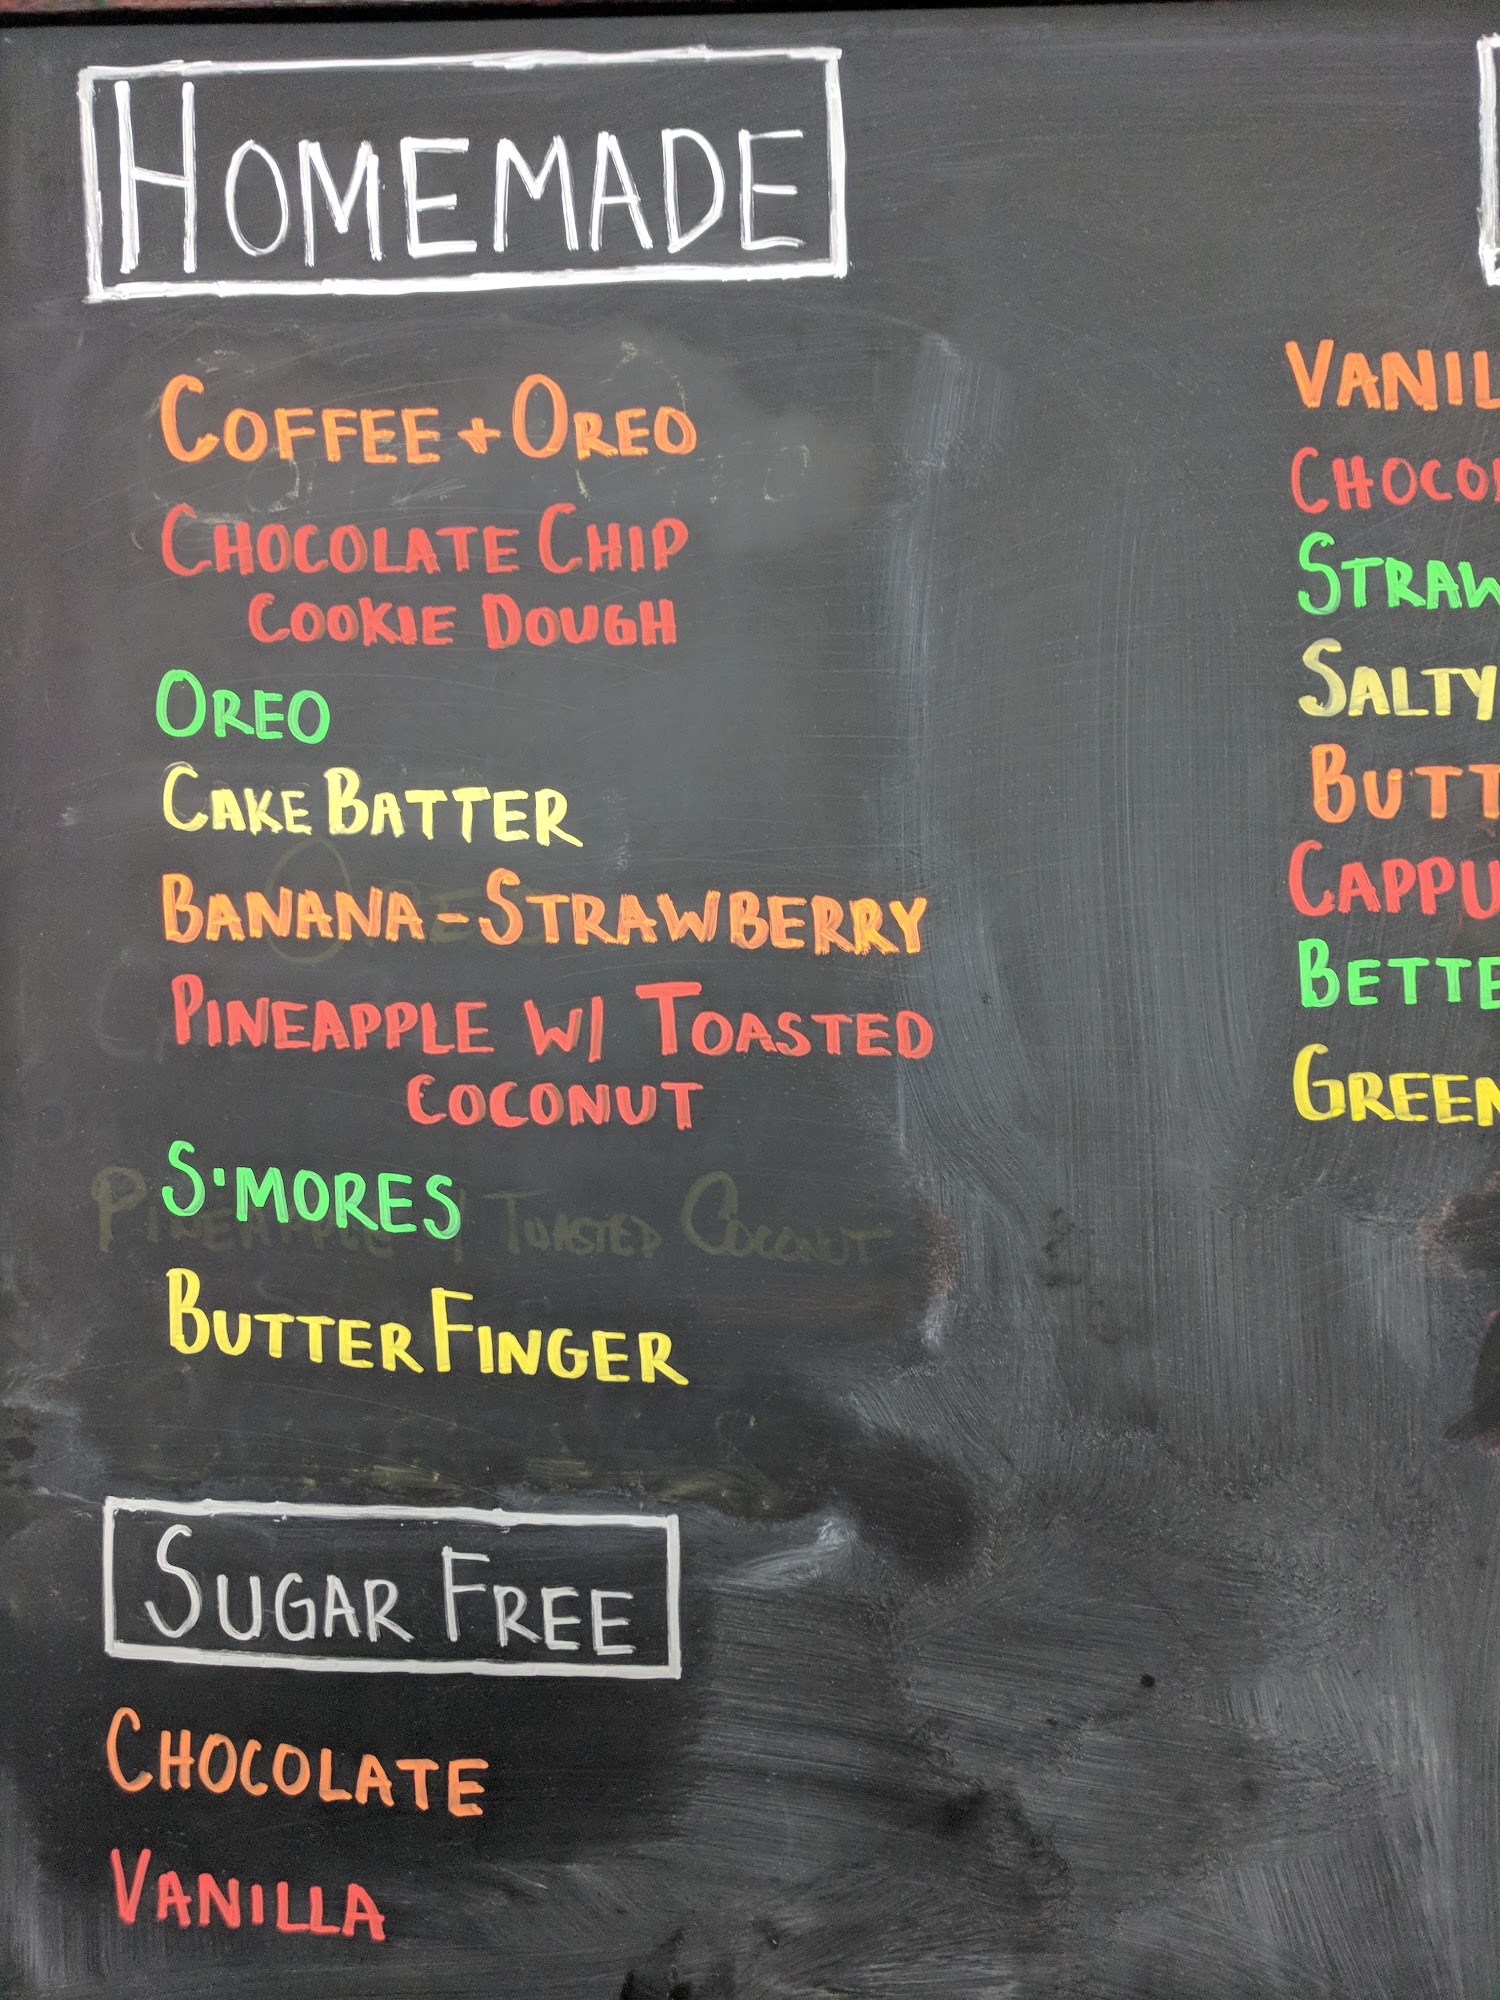 HOMEMADE
COFFEE + OREO
CHOCOLATE CHIP
COOKIE DOUGH
OREO
CAKE BATTER
BANANA - STRAWBERRY
PINEAPPLE W/ TOASTED
COCONUT
S'MORES
BUTTERFINGER
SUGAR FREE
CHOCOLATE
VANILLA
VANIL
CHOCO
STRAW
SALTY
BUTT
CAPPU
BETTE
GREEN